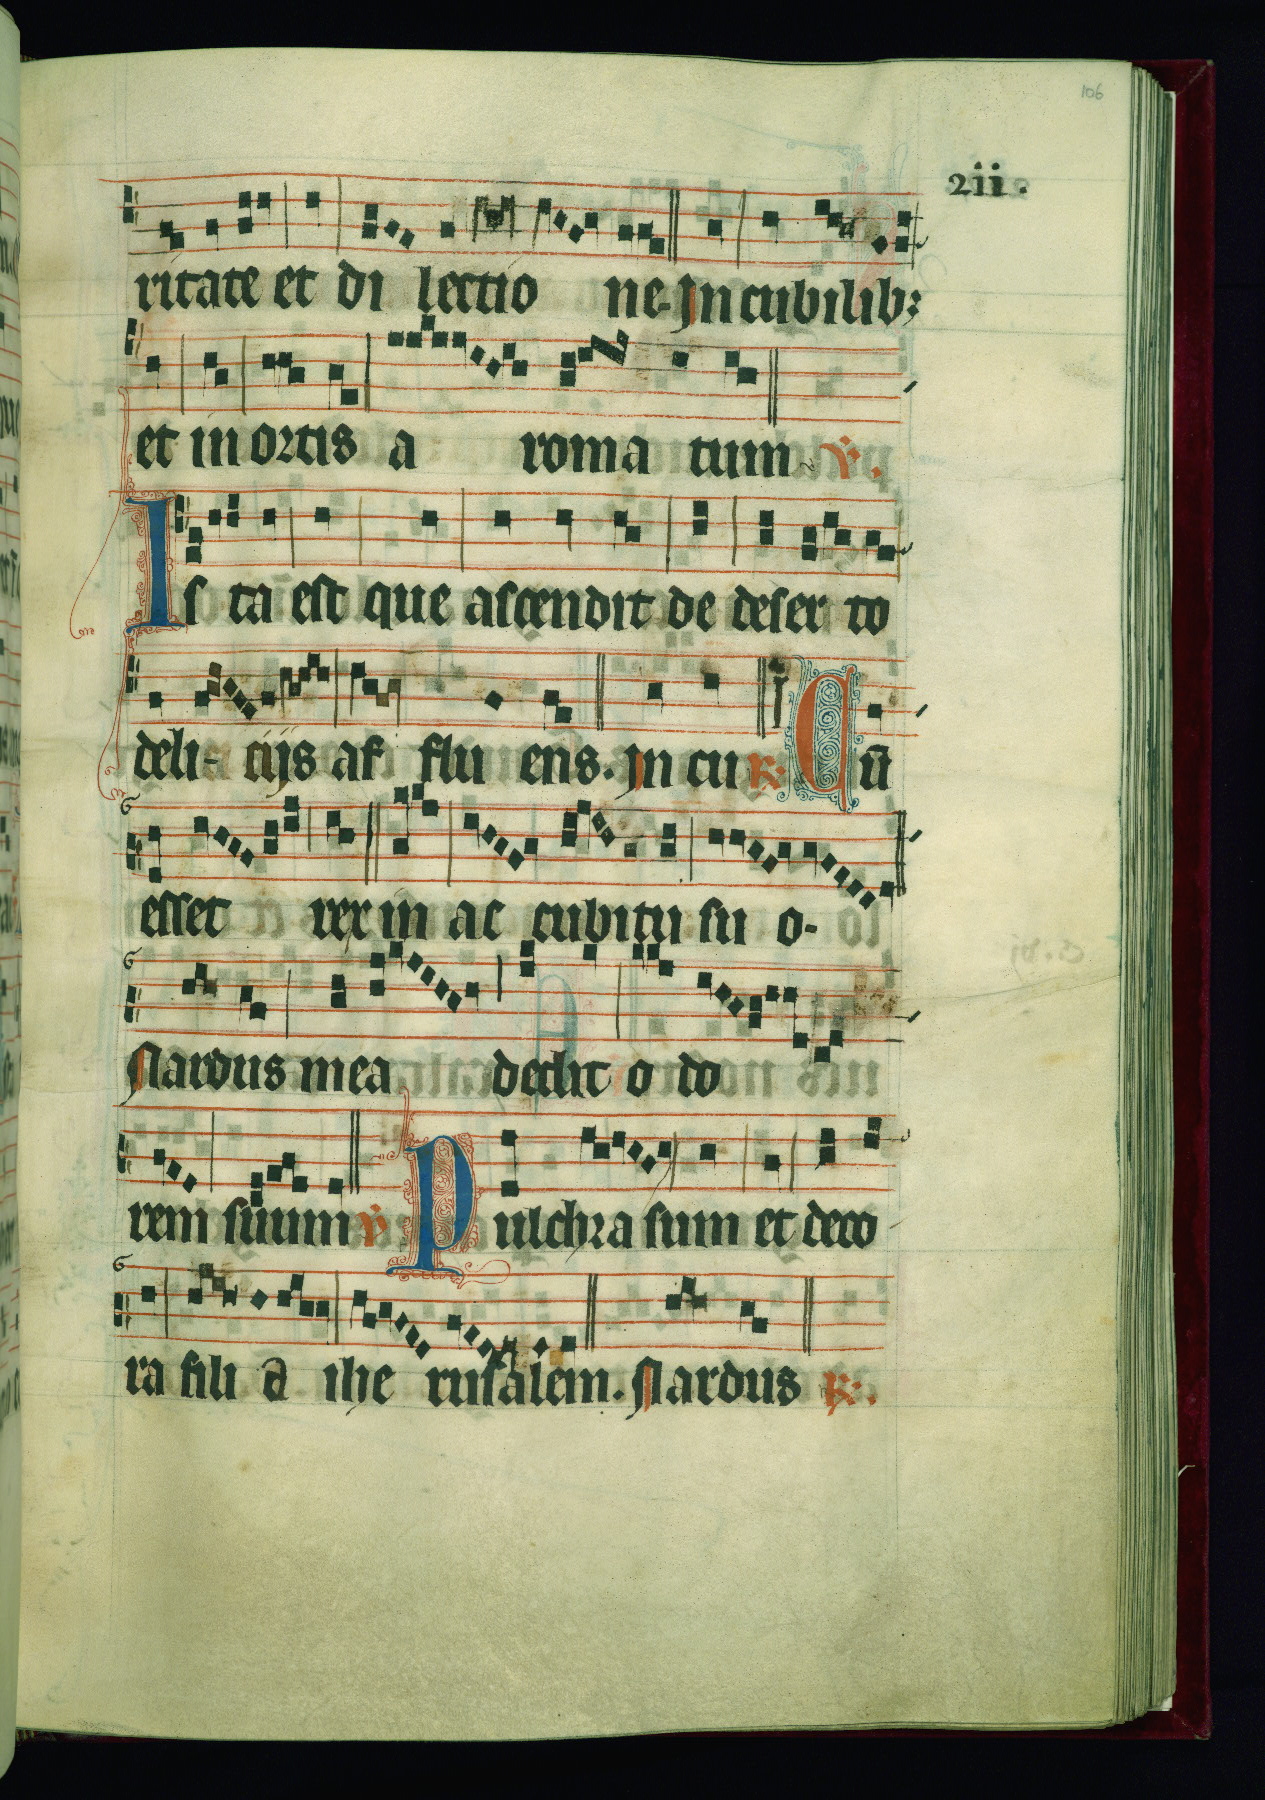 106
2ii.
ritate et di lectio ne. In cubilibꝫ
et in ortis a roma tum ℣.
Is ta est que ascendit de deser to
deli- cijs af flu ens. In cu ℟. Cū
esset rex in ac cubitu su o-
Nardus mea dedit o do
rem suum ℣ Pulchra sum et deco
ra fili a ihe rusalem. Nardus ℟.